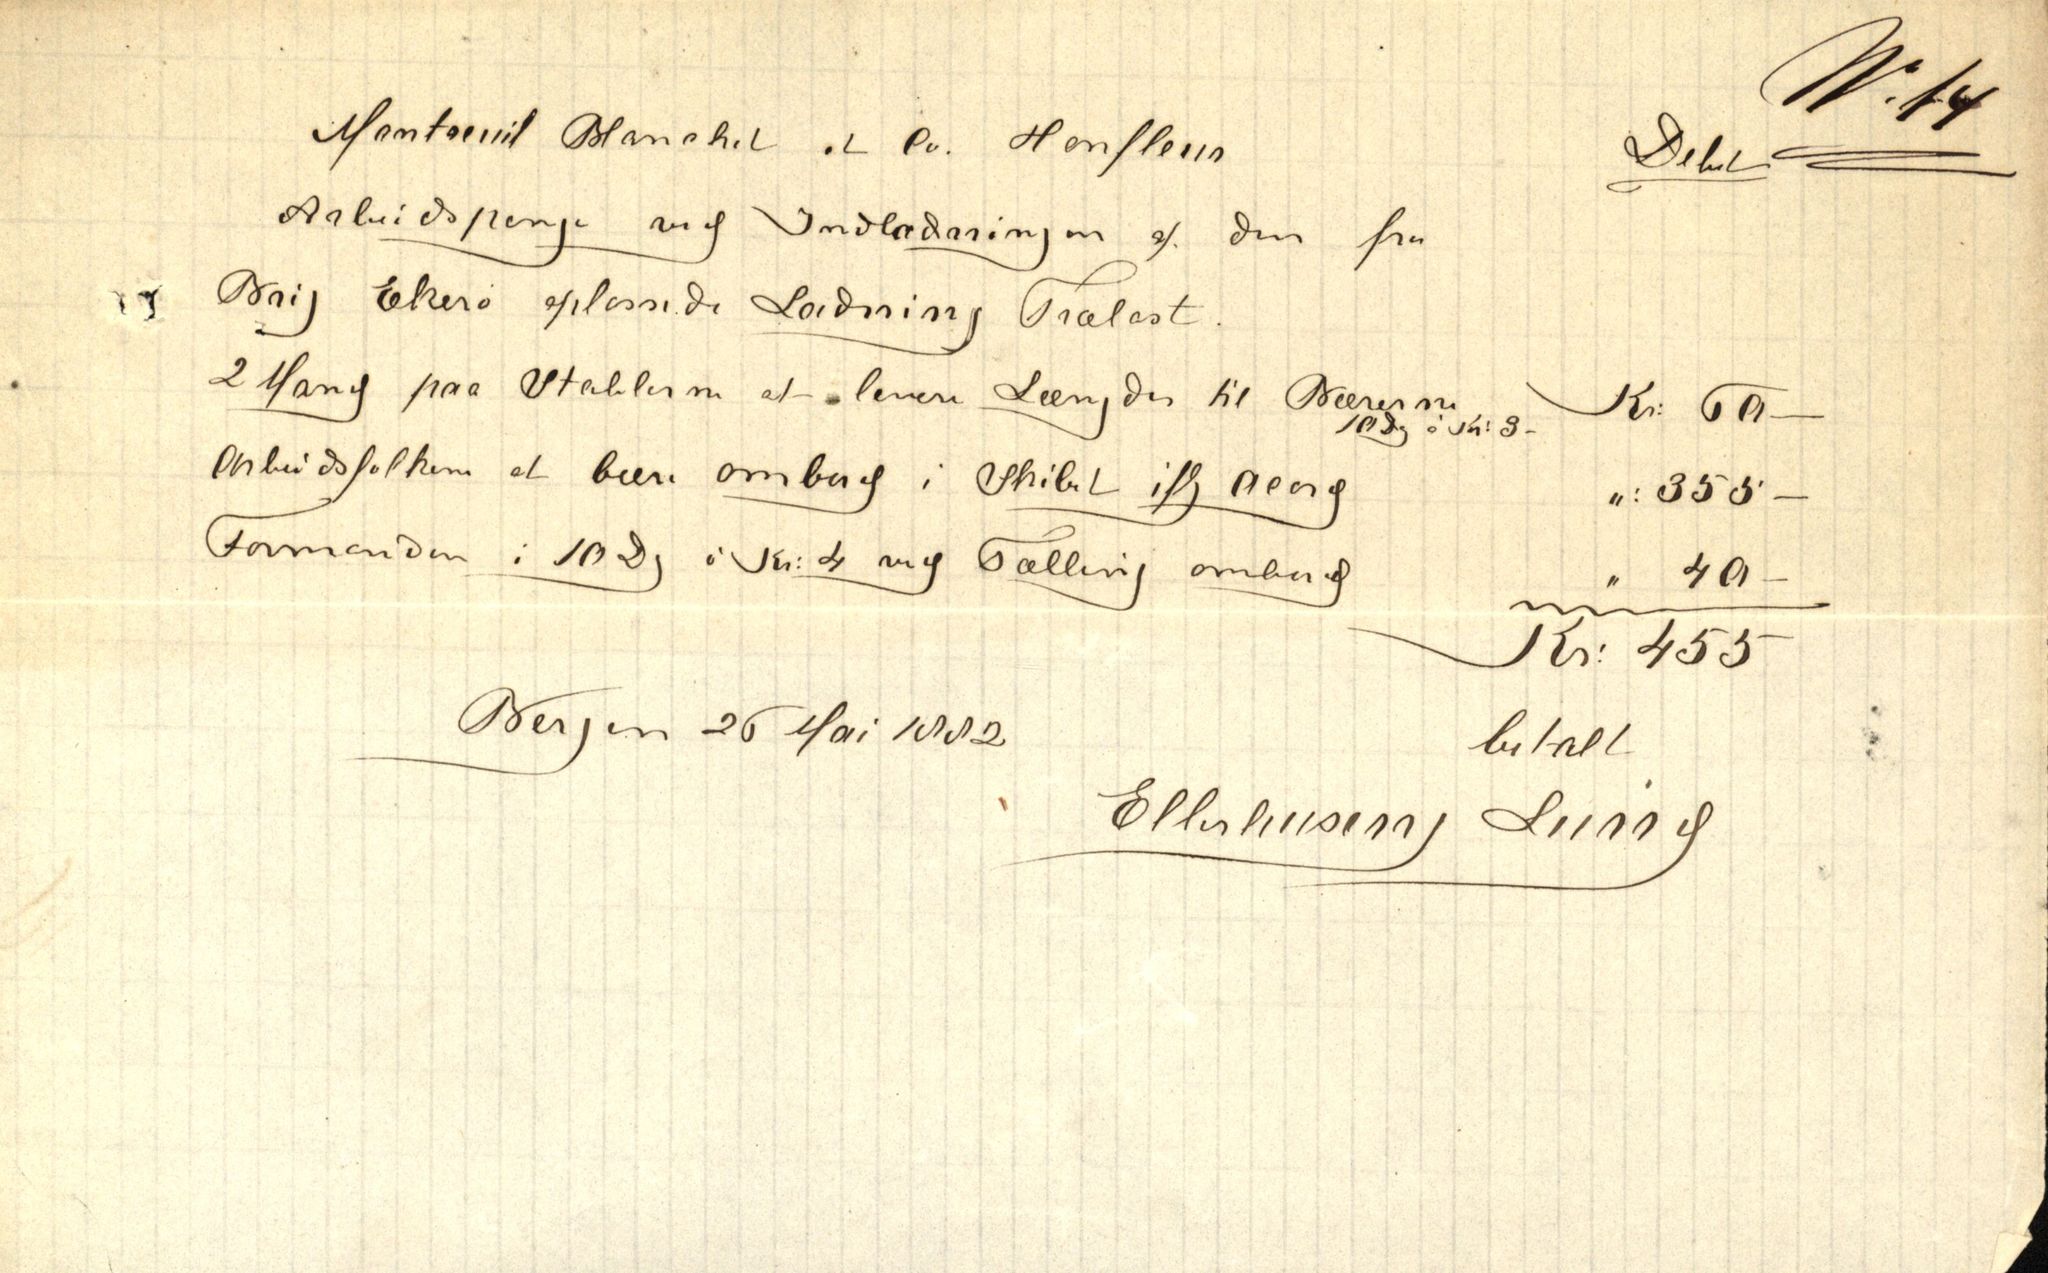 No. 14
Mantreuil Blanchet et Co. Honfleur Debet
Arbeidspenge ved Indladningen af den fra
Brig Ekerö oplossede Ladning Trælast.
2 Mand paa Stablerne at levere Længder til Bærerne Kr: 60 —
10 Dg á Kr: 3 –
Arbeidsfolkene at bære ombord i Skibet iflg Accord „: 355 —
Formanden i 10 Dg á Kr: 4 ved Tælling ombord „ 40 –
Kr: 455 –
Bergen 26 Mai 1882 betalt
Ellerhusen Lund